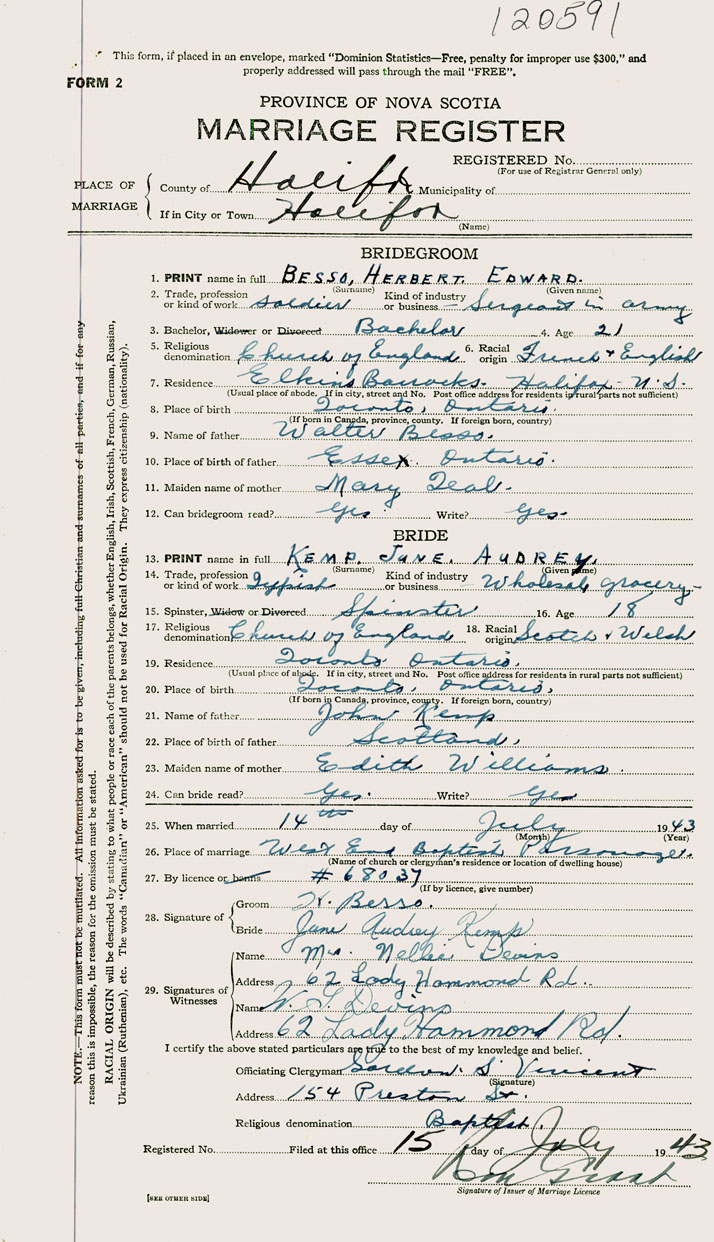 120591
This form, if placed in an envelope, marked "Dominion Statistics—Free, penalty for improper use $300," and
properly addressed will pass through the mail "FREE".
FORM 2
PROVINCE OF NOVA SCOTIA
MARRIAGE REGISTER
REGISTERED No.
(For use of Registrar General only)
PLACE OF MARRIAGE
County of Halifax Municipality of
If in City or Town Halifax
(Name)
BRIDEGROOM
1. PRINT name in full BESSO, HERBERT EDWARD.
(Surname) (Given name)
2. Trade, profession or kind of work soldier Kind of industry or business - Sergeant in army
3. Bachelor, Widower or Divorced Bachelor 4. Age 21
5. Religious denomination Church of England 6. Racial origin French & English
7. Residence Elkins Barracks - Halifax - N.S.
(Usual place of abode. If in city, street and No. Post office address for residents in rural parts not sufficient)
8. Place of birth Toronto, Ontario.
(If born in Canada, province, county. If foreign born, country)
9. Name of father Walter Besso.
10. Place of birth of father Essex Ontario.
11. Maiden name of mother Mary Teal.
12. Can bridegroom read? Yes Write? Yes
BRIDE
13. PRINT name in full KEMP, JUNE. AUDREY.
(Surname) (Given name)
14. Trade, profession or kind of work Typpist Kind of industry or business - Wholesale grocery -
15. Spinster, Widow or Divorced Spinster 16. Age 18
17. Religious denomination Church of England 18. Racial origin Scotch & Welsh
19. Residence Toronto Ontario.
(Usual place of abode. If in city, street and No. Post office address for residents in rural parts not sufficient)
20. Place of birth Toronto, Ontario.
(If born in Canada, province, county. If foreign born, country)
21. Name of father John Kemp
22. Place of birth of father Scotland.
23. Maiden name of mother Edith Williams.
24. Can bride read? Yes. Write? Yes
25. When married 14th day of July 1943
(Month) (Year)
26. Place of marriage West End Baptist Parsonage.
(Name of church or clergyman's residence or location of dwelling house)
27. By licence or banns # 68037
(If by licence, give number)
28. Signature of
Groom H. Besso.
Bride June Audrey Kemp
29. Signatures of Witnesses
Name Mrs. Nellie Devins
Address 62 Lady Hammond Rd.
Name Devins
Address 62 Lady Hammond Rd.
I certify the above stated particulars are true to the best of my knowledge and belief.
Officiating Clergyman Gordon S Vincent
(Signature)
Address 154 Preston St.
Religious denomination Baptist.
Registered No. Filed at this office 15 day of July 1943
Grant
Signature of Issuer of Marriage Licence
[SEE OTHER SIDE]
NOTE.—This form must not be mutilated. All information asked for is to be given, including full Christian and surnames of all parties, and if for any
reason this is impossible, the reason for the omission must be stated.
RACIAL ORIGIN will be described by stating to what people or race each of the parents belongs, whether English, Irish, Scottish, French, German, Russian,
Ukrainian (Ruthenian), etc. The words "Canadian" or "American" should not be used for Racial Origin. They express citizenship (nationality).